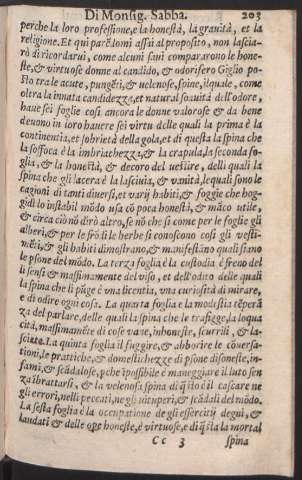 Di Monsig. Sabba. 203
perche la loro professione, e la honestà, la gravità, et la
religione. Et qui parēdomi assai al proposito, non lascia-
rò di ricordarui, come alcuni saui compararono le hone-
ste, & virtuose donne al candido, & odorifero Giglio po-
sto tra le acute, pungēti, & uelenose, spine, ilquale, come
oltra la innata candidezza, et natural soauità dell'odore,
haue sei foglie cosi ancora le donne valorose & da bene
deuono in loro hauere sei virtu delle quali la prima è la
continentia, et sobrietà della gola, et di questa la spina che
la soffoca è la imbriachezza, & la crapula, la seconda fo-
glia, & la honestà, & decoro del uestire, delli quali la
spina che gli lacera è la lasciuia, & vanità, lequali sono le
cagioni di tanti diuersi, et varij habiti, & foggie che hog-
gidi lo instabil mōdo usa cō poca honestà, & māco utile,
& circa ciò nō dirò altro, se nō che si come per le foglie gli
alberi, & per le frōdi le herbe si conoscono cosi gli vesti-
mēti, & gli habiti dimostrano, & manifestāno quali siano
le psone del mōdo. La terza foglia è la custodia è freno del
li sensi & massimamente del viso, et dell'odito delle quali
la spina che li pūge è vna licentia, vna curiosità di mirare,
e di odire ogni cosa. La quarta foglia è la modestia tēperā
za del parlare, delle quali la spina che le trafigge, la loqua
cità, massimamēte di cose vane, inhoneste, scurrili, & la-
sciue. La quinta foglia il fuggire, & abborire le cōuersa-
tioni, le prattiche, & domestichezze di psone dishoneste, in-
fami, & scādalose, pche ipossibile è maneggiare il luto sen
za ibrattarsi, & la velenosa spina di q̄sto è il cascare ne
gli errori, nelli peccati, ne gli uituperi, & scādali del mōdo.
La sesta foglia è la occupatione de gli essercitij degni, &
laudati & delle ope honeste, e virtuose, e di q̄sta la mortal
Cc 3 spina